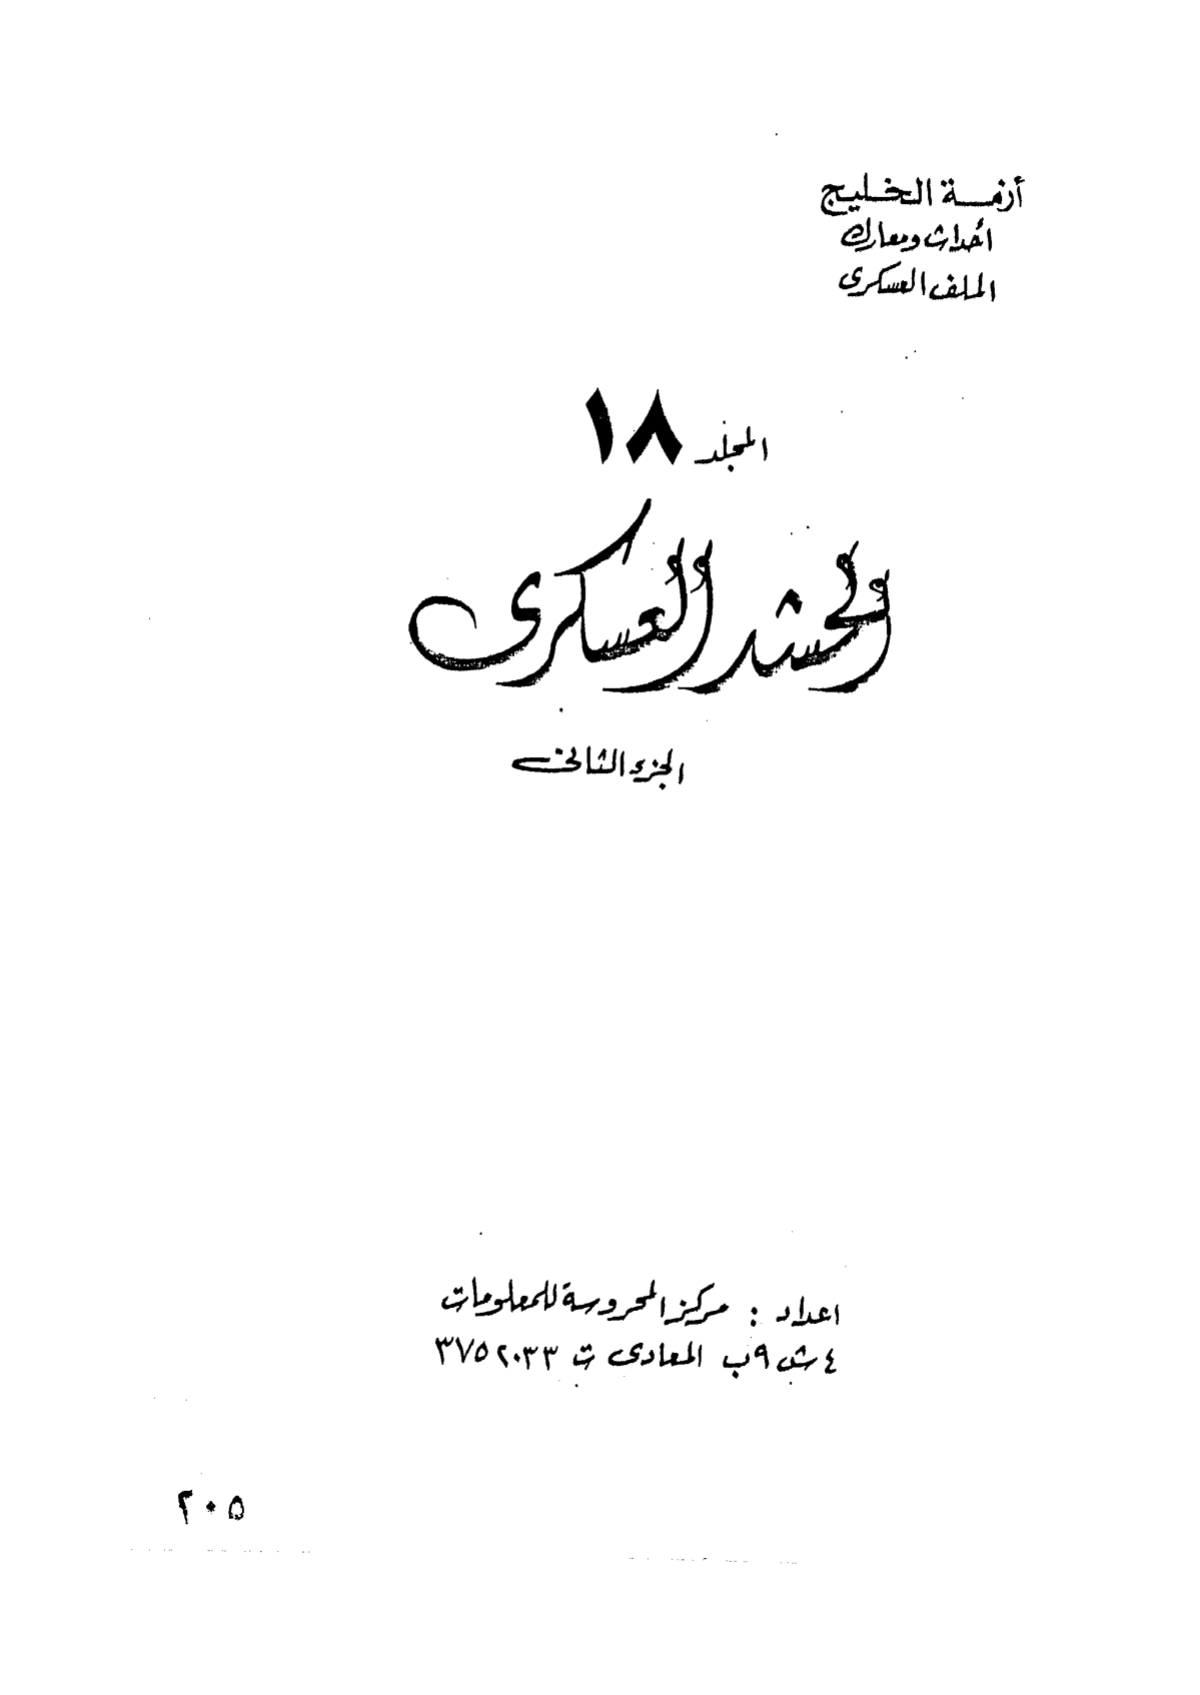 أزمة الخليج
أحداث ومعارك
الملف العسكرى
المجلد ١٨
الحشد العسكرى
الجزء الثانى
اعداد : مركز المحروسة للمعلومات
٤ ش ٩ب المعادى ت ٣٧٥٢٠٣٣
٢٠٥